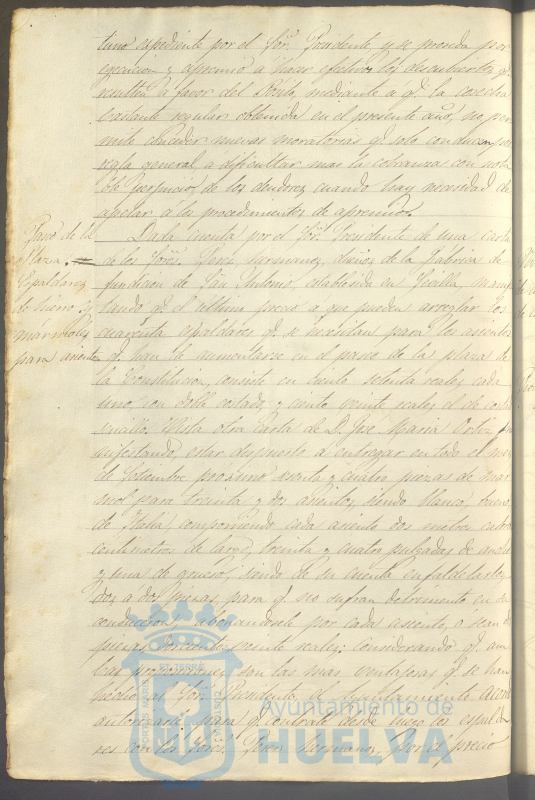 tuno expediente por el Sor. Presidente, y se proceda por
egecucion y apremio á hacer efectivos los descubiertos q.
resulten á favor del Pósito, mediante á q. la cosecha
bastante regular obtenida en el presente año, no per
mite conceder nuevas moratorias q. solo conducen por
regla general á dificultar mas la cobranza con nota
ble perjuicio de los deudores cuando hay necesidad de
apelar á los procedimientos de apremio.
Paseo de la
Plaza.=
Espaldares
de hierro y
mármoles
para asientos
Dada cuenta por el Sor. Presidente de una carta
de los Sores. Perez hermanos, dueños de la fabrica de
fundicion de San Antonio, establecida en Sevilla, manifes
tando q. el último precio á que pueden arreglar los
cuarenta espaldares q. se necesitan para los asientos
q. han de aumentarse en el paseo de la plaza de
la Constitucion, consiste en ciento setenta reales cada
uno con doble costado, y ciento veinte reales el de costado
sencillo. Vista otra carta de D. José Maria Ortiz, ma
nifestando, estar dispuesto á entregar en todo el mes
de Setiembre próximo sesenta y cuatro piezas de mar
mol para treinta y dos asientos, siendo blanco, bueno,
de Italia, componiendo cada asiento dos metros cuatro
centimetros de largo, treinta y cuatro pulgadas de ancho
y una de grueso; siendo de su cuenta
dos á dos piezas, para q. no sufran detrimento en su
conduccion; abonandosele por cada asiento, ó sean dos
piezas doscientos veinte reales: considerando q. am
bas proposiciones son las mas ventajosas q. se han
Sor. Presidente, el Ayuntamiento acordó
autorizarle para q. contrate desde luego los espalda
res con los Sores. Perez hermanos, por el precio
PORTUS MARIS ET TERRE CUSTODIA
Ayuntamiento de
HUELVA